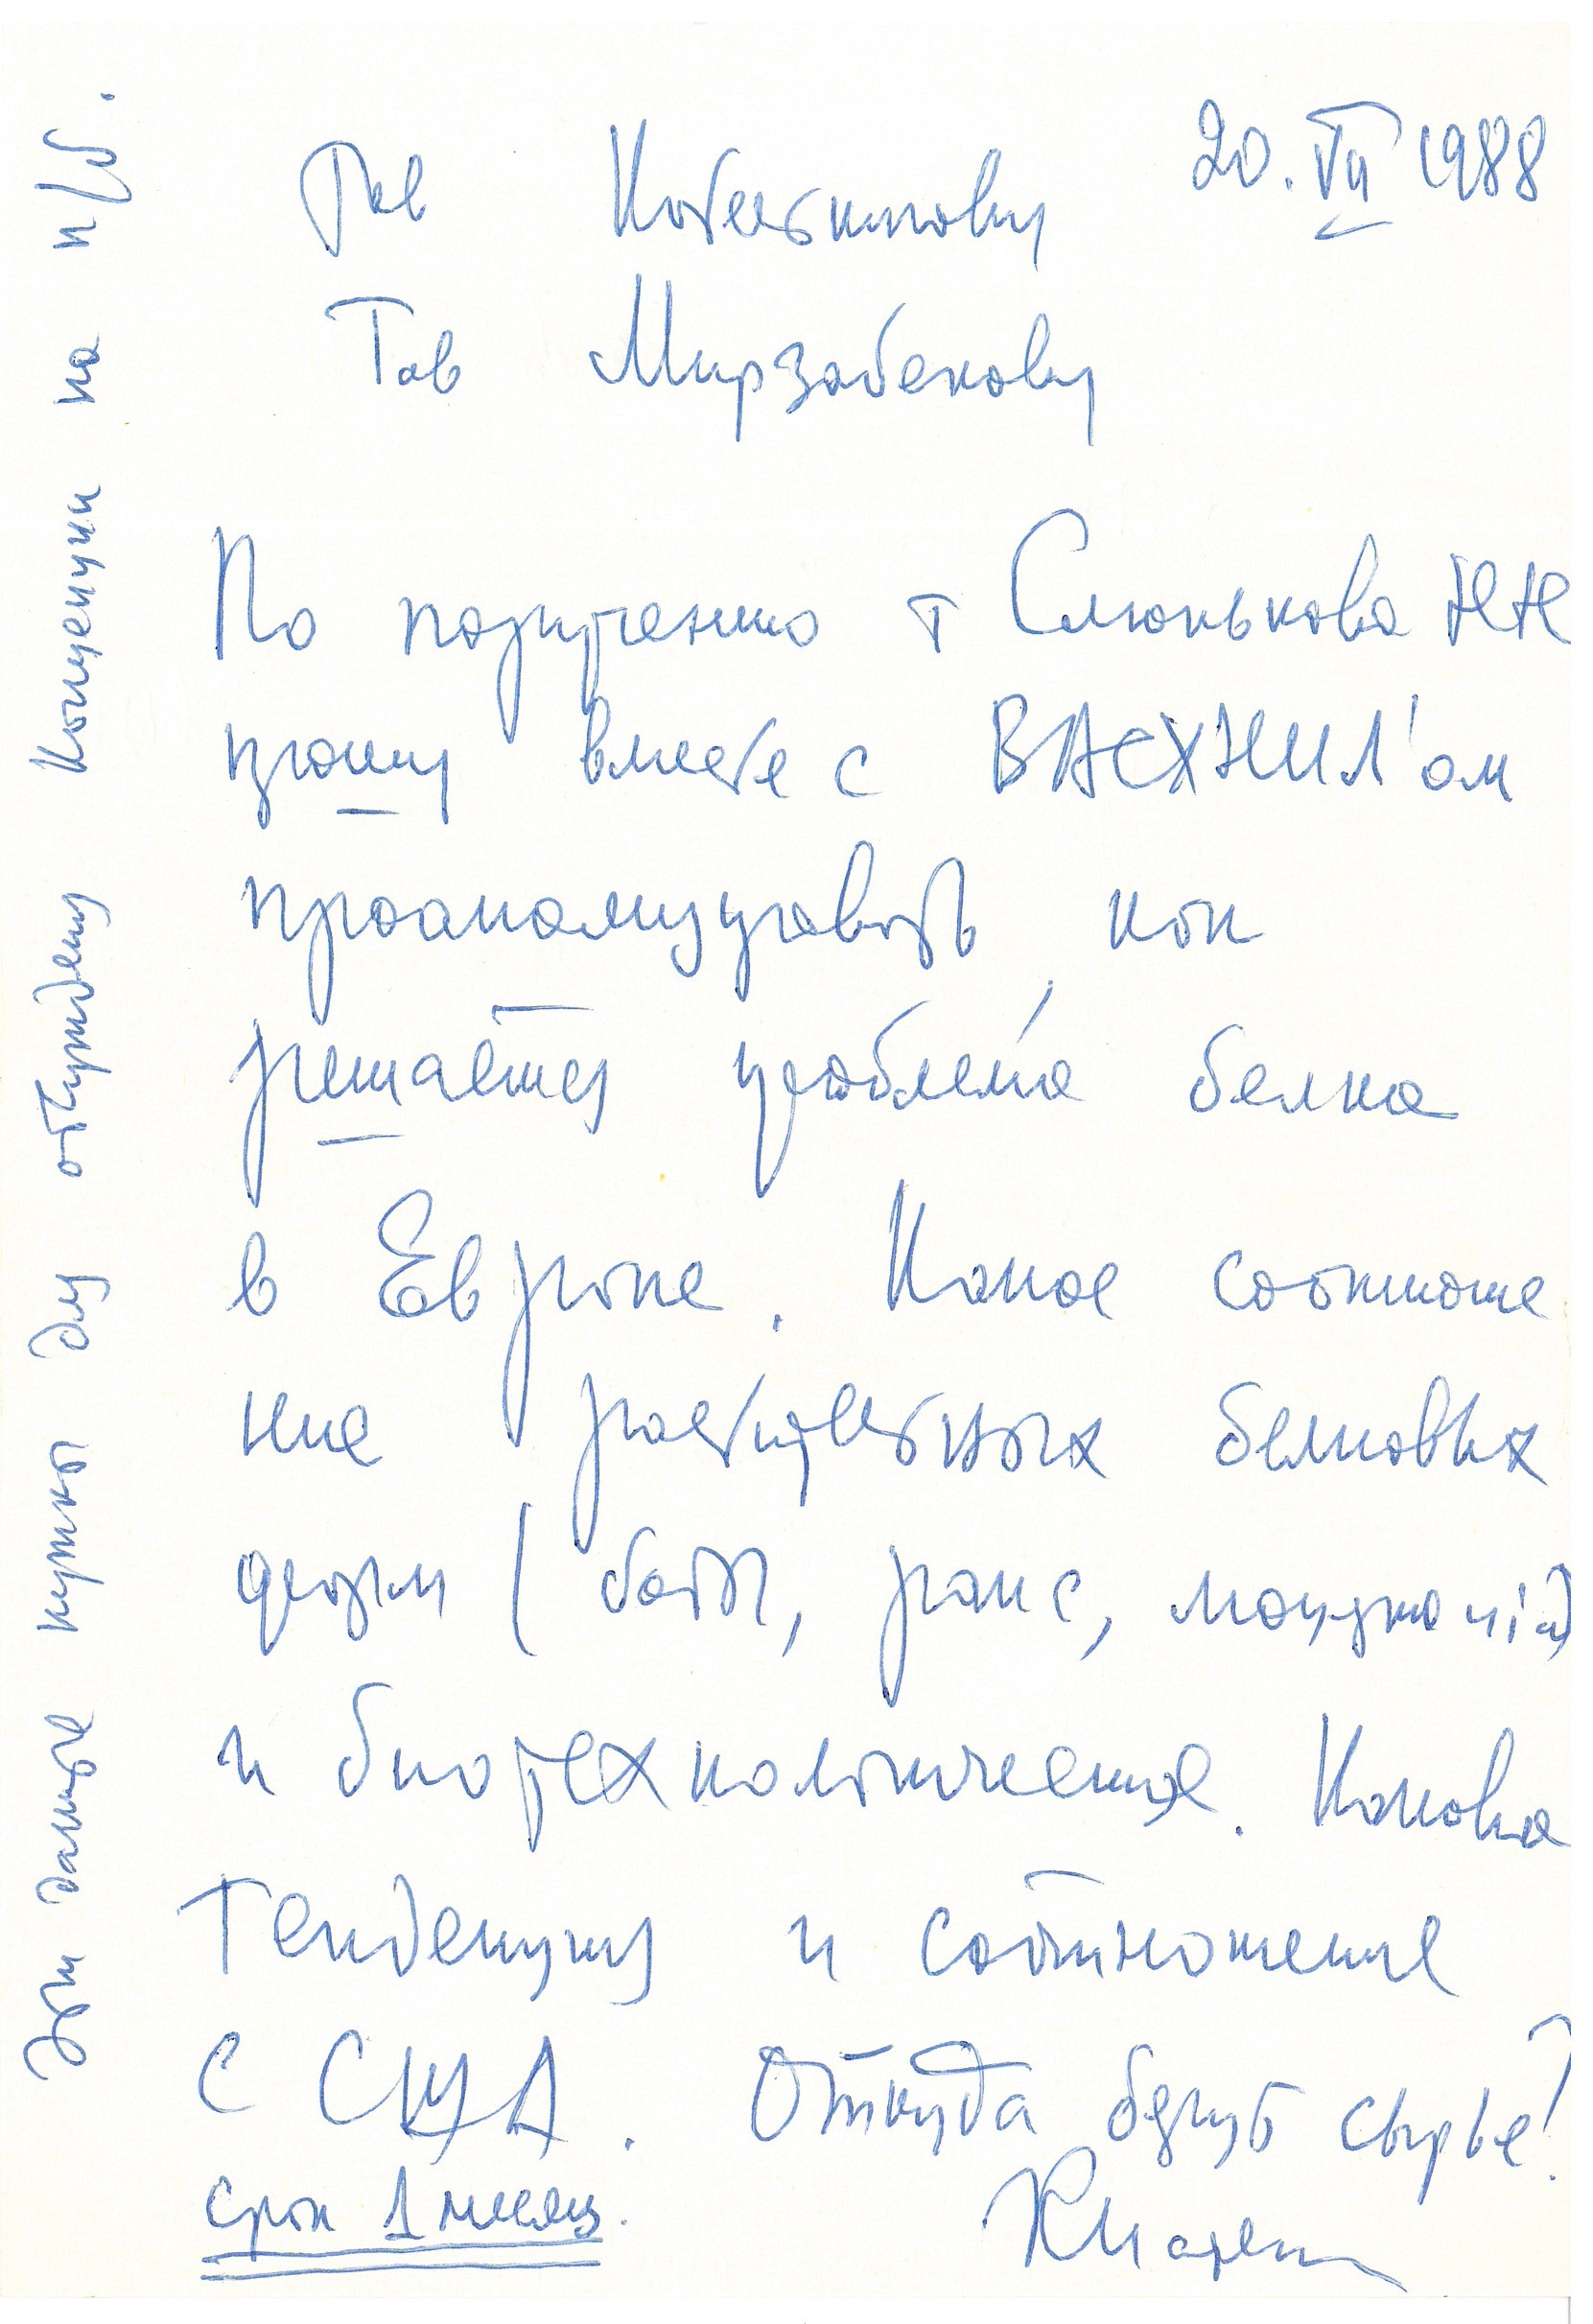 20.VII 1988
Тов Кобельникову
Тов Мирзабекову
По поручению т Слюнькова НН
прошу вместе с ВАСХНИЛ'ом
проанализировать, как
решается проблема белка
в Европе. Какое соотноше
ние растительных белковых
форм (соя, рапс,
и биотехнологические. Какова
тенденция и соотношение
с США. Откуда берут сырье?
срок 1 месяц.
Эти данные нужны для обсуждения Концепции на п/б.